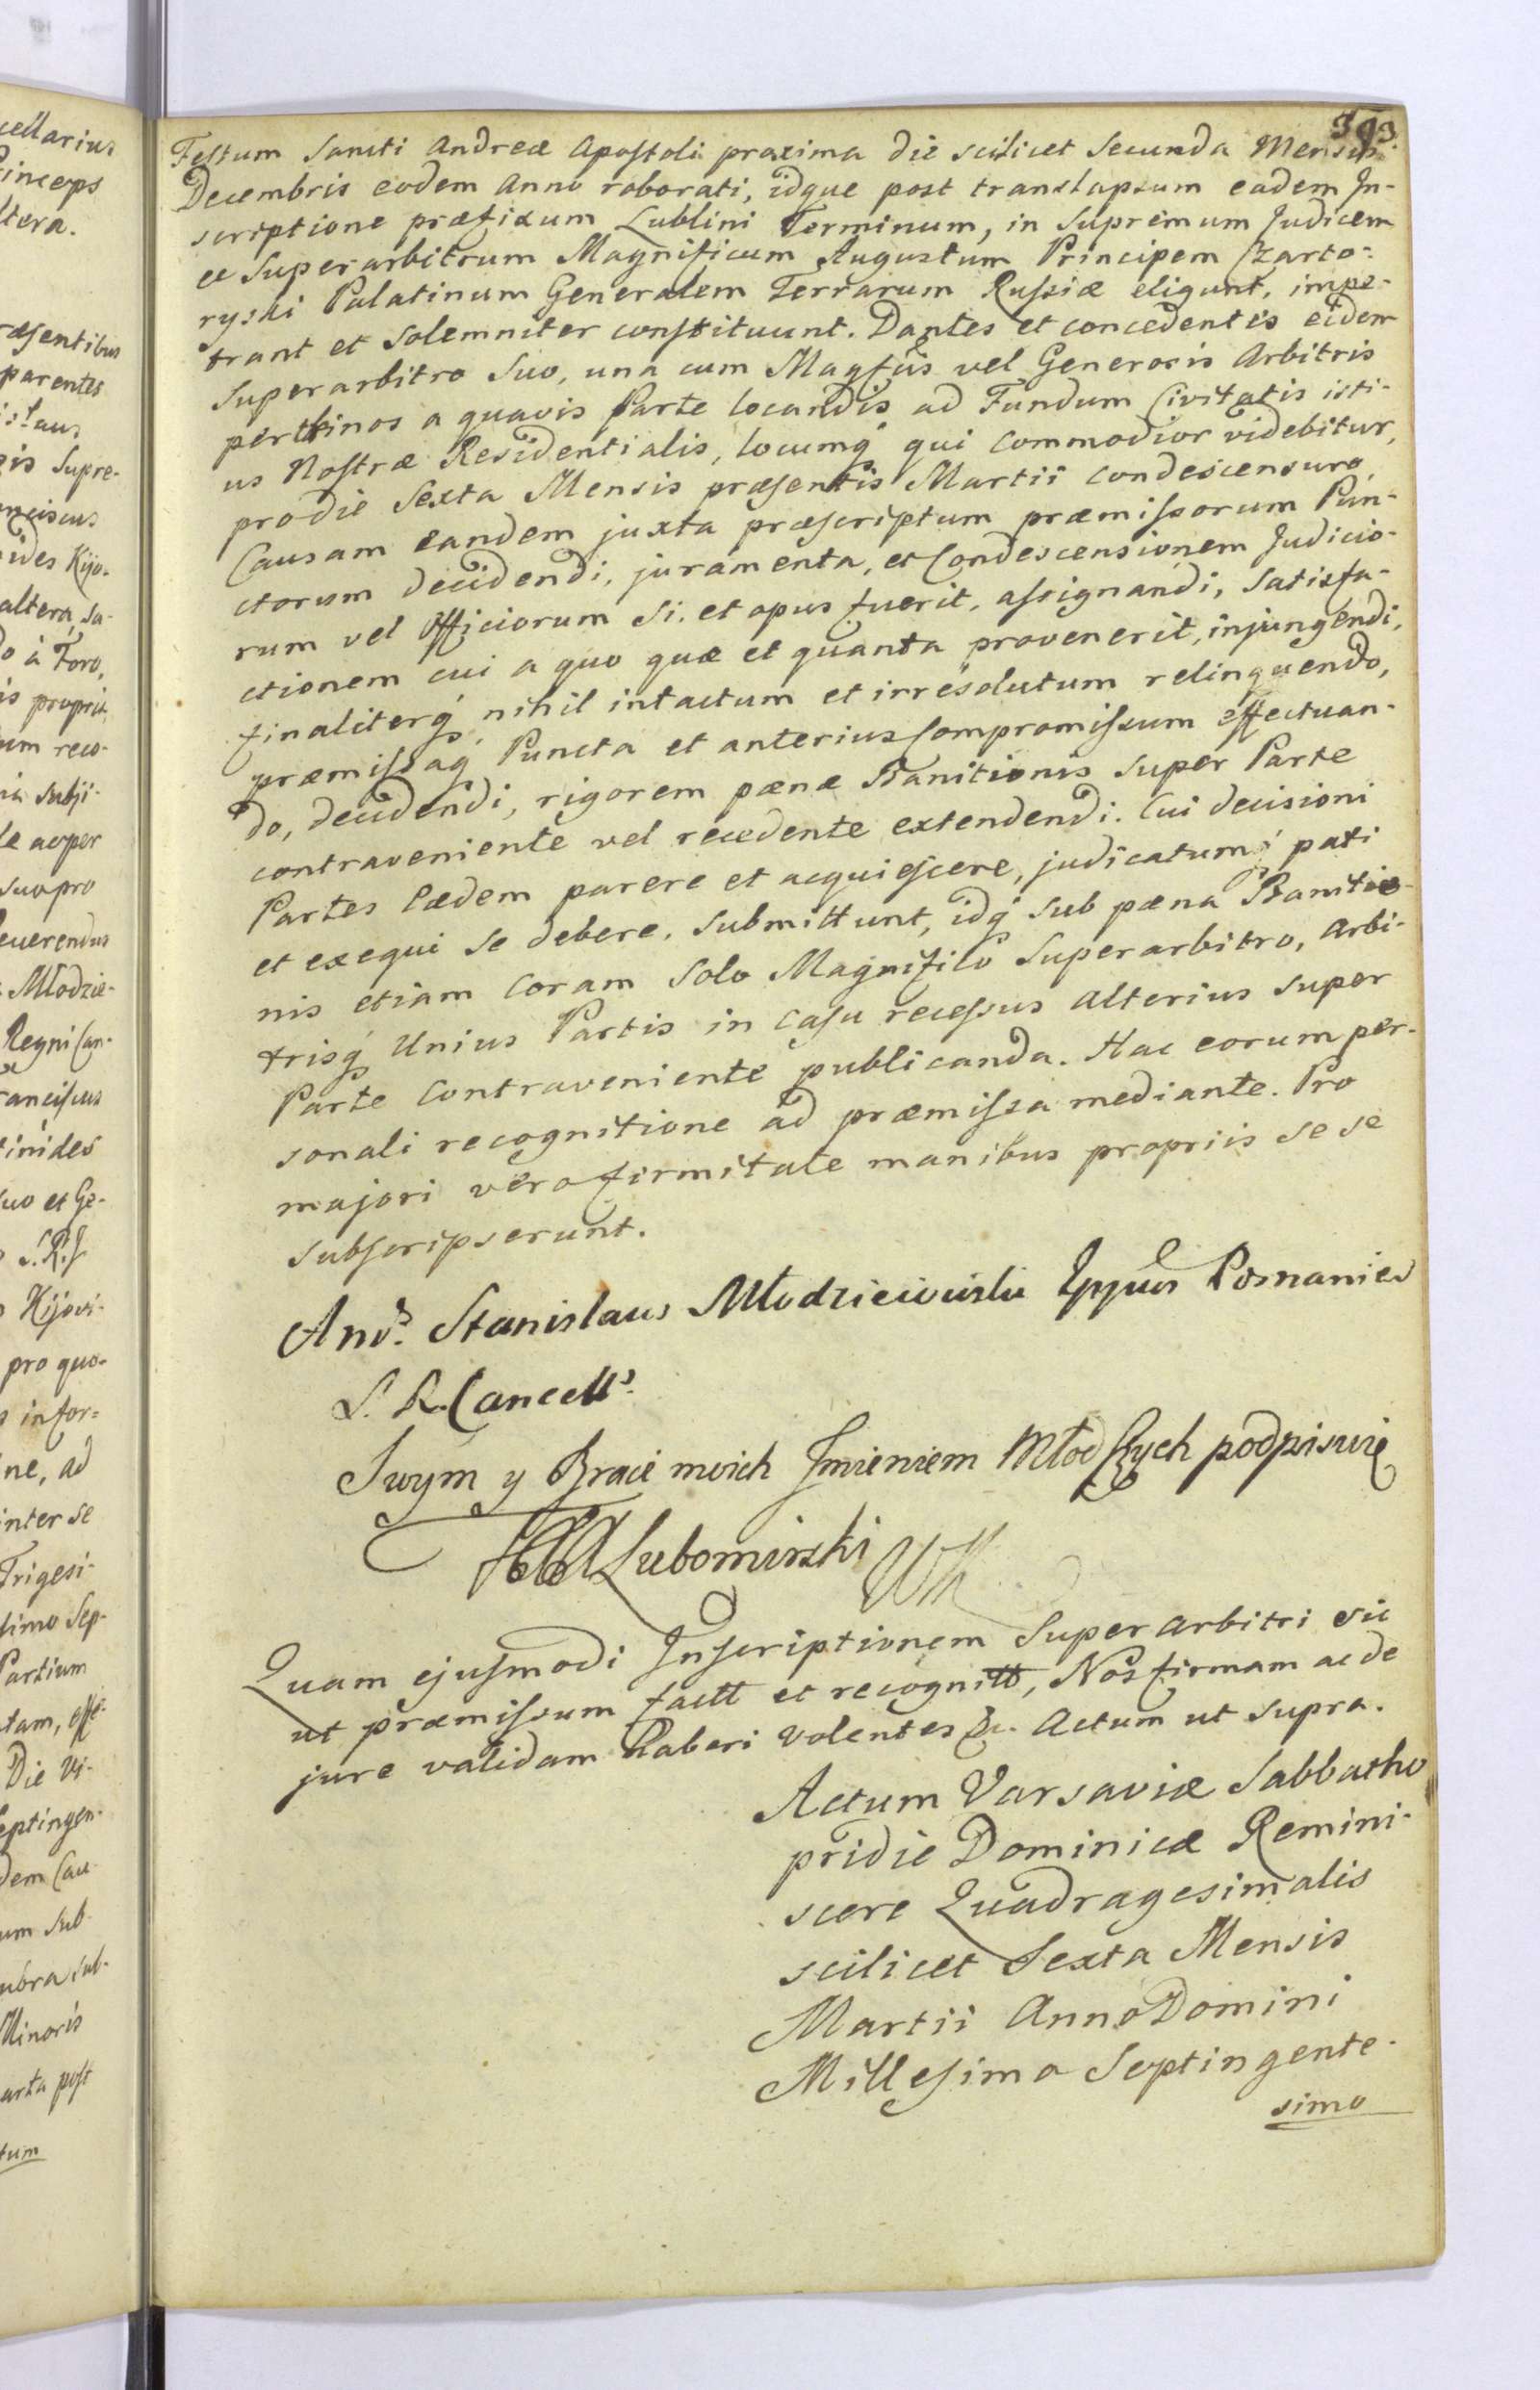 393
Festum Sancti Andreæ Apostoli proxima die scilicet Secunda Mensis
Decembris eodem Anno roborati, idque post translapsum eadem In-
scriptione præfixum Lublini Terminum, in Supremum Judicem
et Superarbitrum Magnificum Augustum Principem Czarto-
ryski Palatinum Generalem Terrarum Russiæ eligunt, impe-
trant et solemniter constituunt. Dantes et concedentes eidem
Superarbitro Suo, una cum Magfcis vel Generosis Arbitris
per binos a quavis Parte locandis ad Fundum Civitatis isti-
us Nostræ Residentialis, locumq́ qui commodior videbitur,
pro die Sexta Mensis præsentis Martii condescensuro,
Causam eandem juxta præscriptum præmissorum Pun-
ctorum decidendi, juramenta, et Condescensionem Judicio-
rum vel Officiorum si et opus fuerit, assignandi, Satisfa-
ctionem cui a quo quæ et quanta provenerit, injungendi,
finaliterq́ nihil intactum et irresolutum relinquendo,
præmissaq́ Puncta et anterius Compromissum effectuan-
do, decidendi, rigorem pænæ Banitionis super Parte
contraveniente vel recedente extendendi. Cui decisioni
Partes Eædem parere et acquiescere, judicatumq́ pati
et exequi se debere, submittunt, idq́ sub pæna Banitio-
nis etiam coram solo Magnifico Superarbitro, Arbi-
trisq́ Unius Partis in casu recessus alterius super
Parte contraveniente publicanda. Hac eorum per-
sonali recognitione ad præmissa mediante. Pro
majori vero firmitate manibus propriis se se
subscripserunt.
And. Stanislaus Młodzieiowski Eppus Posnanien
S. R. Cancells.
Swym y Braci moich Imieniem Młodszych podpisuię
Lubomirski WK
Quam ejusmodi Inscriptionem Superarbitri sic
ut præmissum factt et recognitt, Nos firmam ac de
jure validam haberi volentes &c. Actum ut supra.
Actum Varsaviæ Sabbatho
pridie Dominicæ Remini-
scere Quadragesimalis
scilicet Sexta Mensis
Martii Anno Domini
Millesimo Septingente-
simo